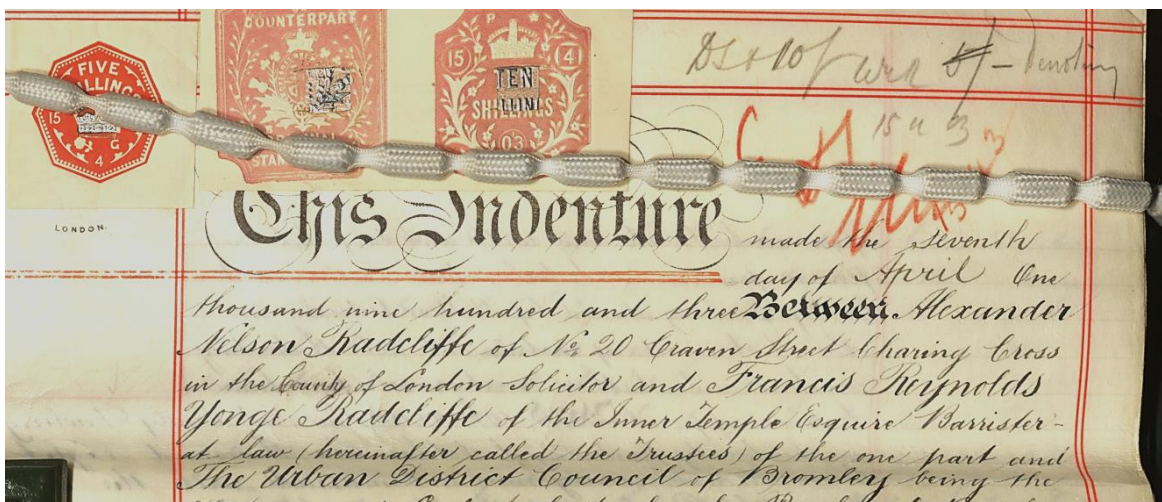 COUNTERPART
FIVE
15
G
4
P
15
4
TEN
SHILLINGS
03
STAM
15 4 3
LONDON.
This Indenture made the seventh
day of April One
thousand nine hundred and three Between Alexander
Nelson Radcliffe of No 20 Craven Street Charing Cross
in the County of London Solicitor and Francis Reynolds
Yonge Radcliffe of the Inner Temple Esquire Barrister-
at law (hereinafter called the Trustees) of the one part and
The Urban District Council of Bromley being the